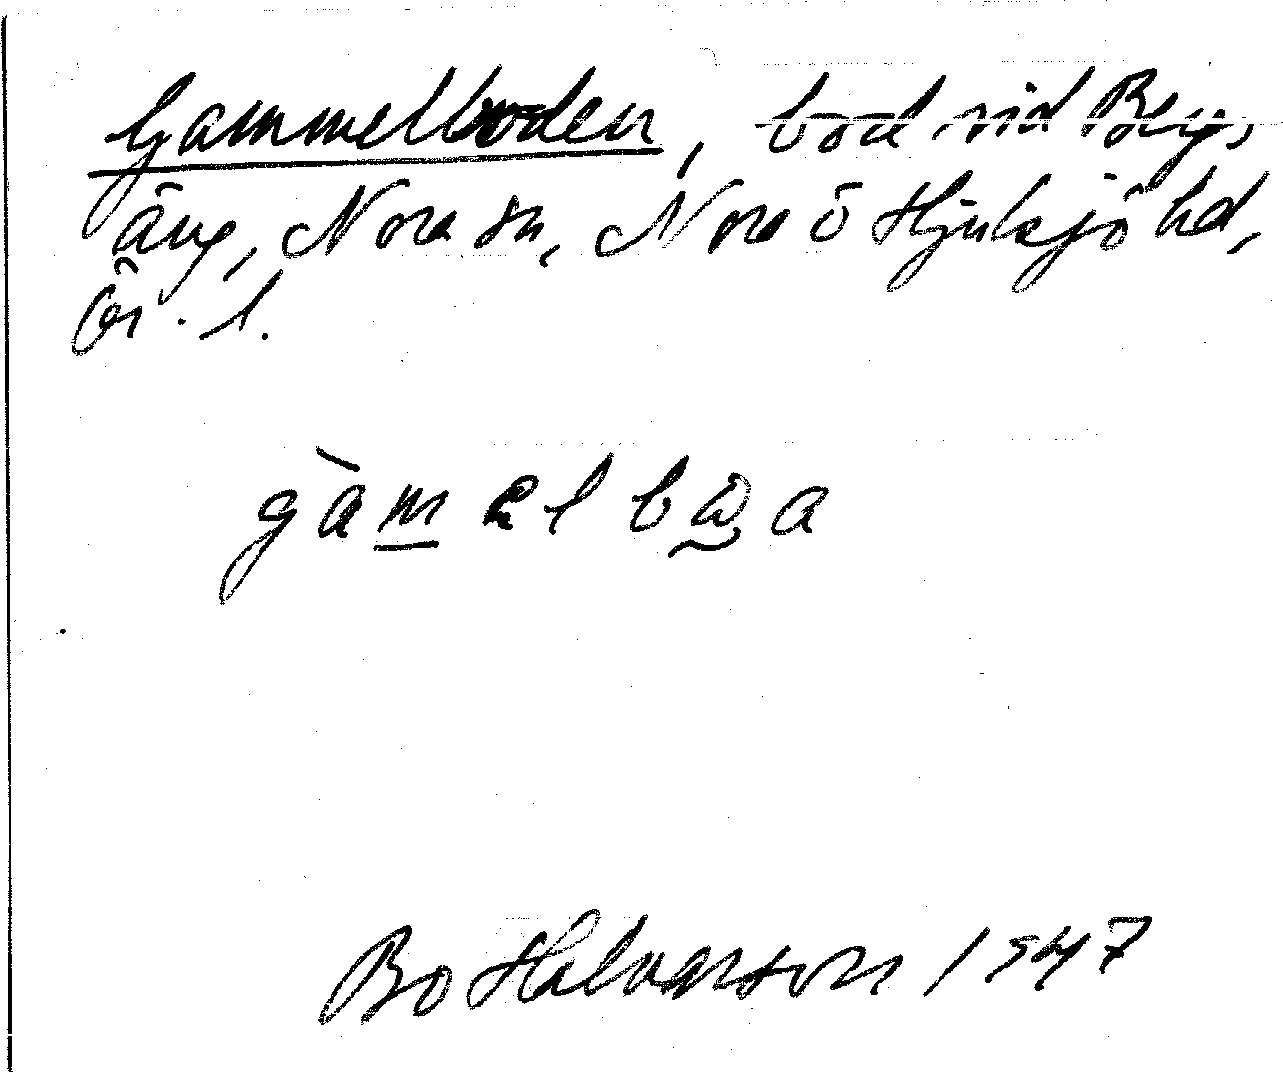 Gammelboden, bod vid Berg,
äng, Nora sn, Nora o Hjulsjö hd,
Ör. l.
gàmelbωa
Bo Halvarson 1947